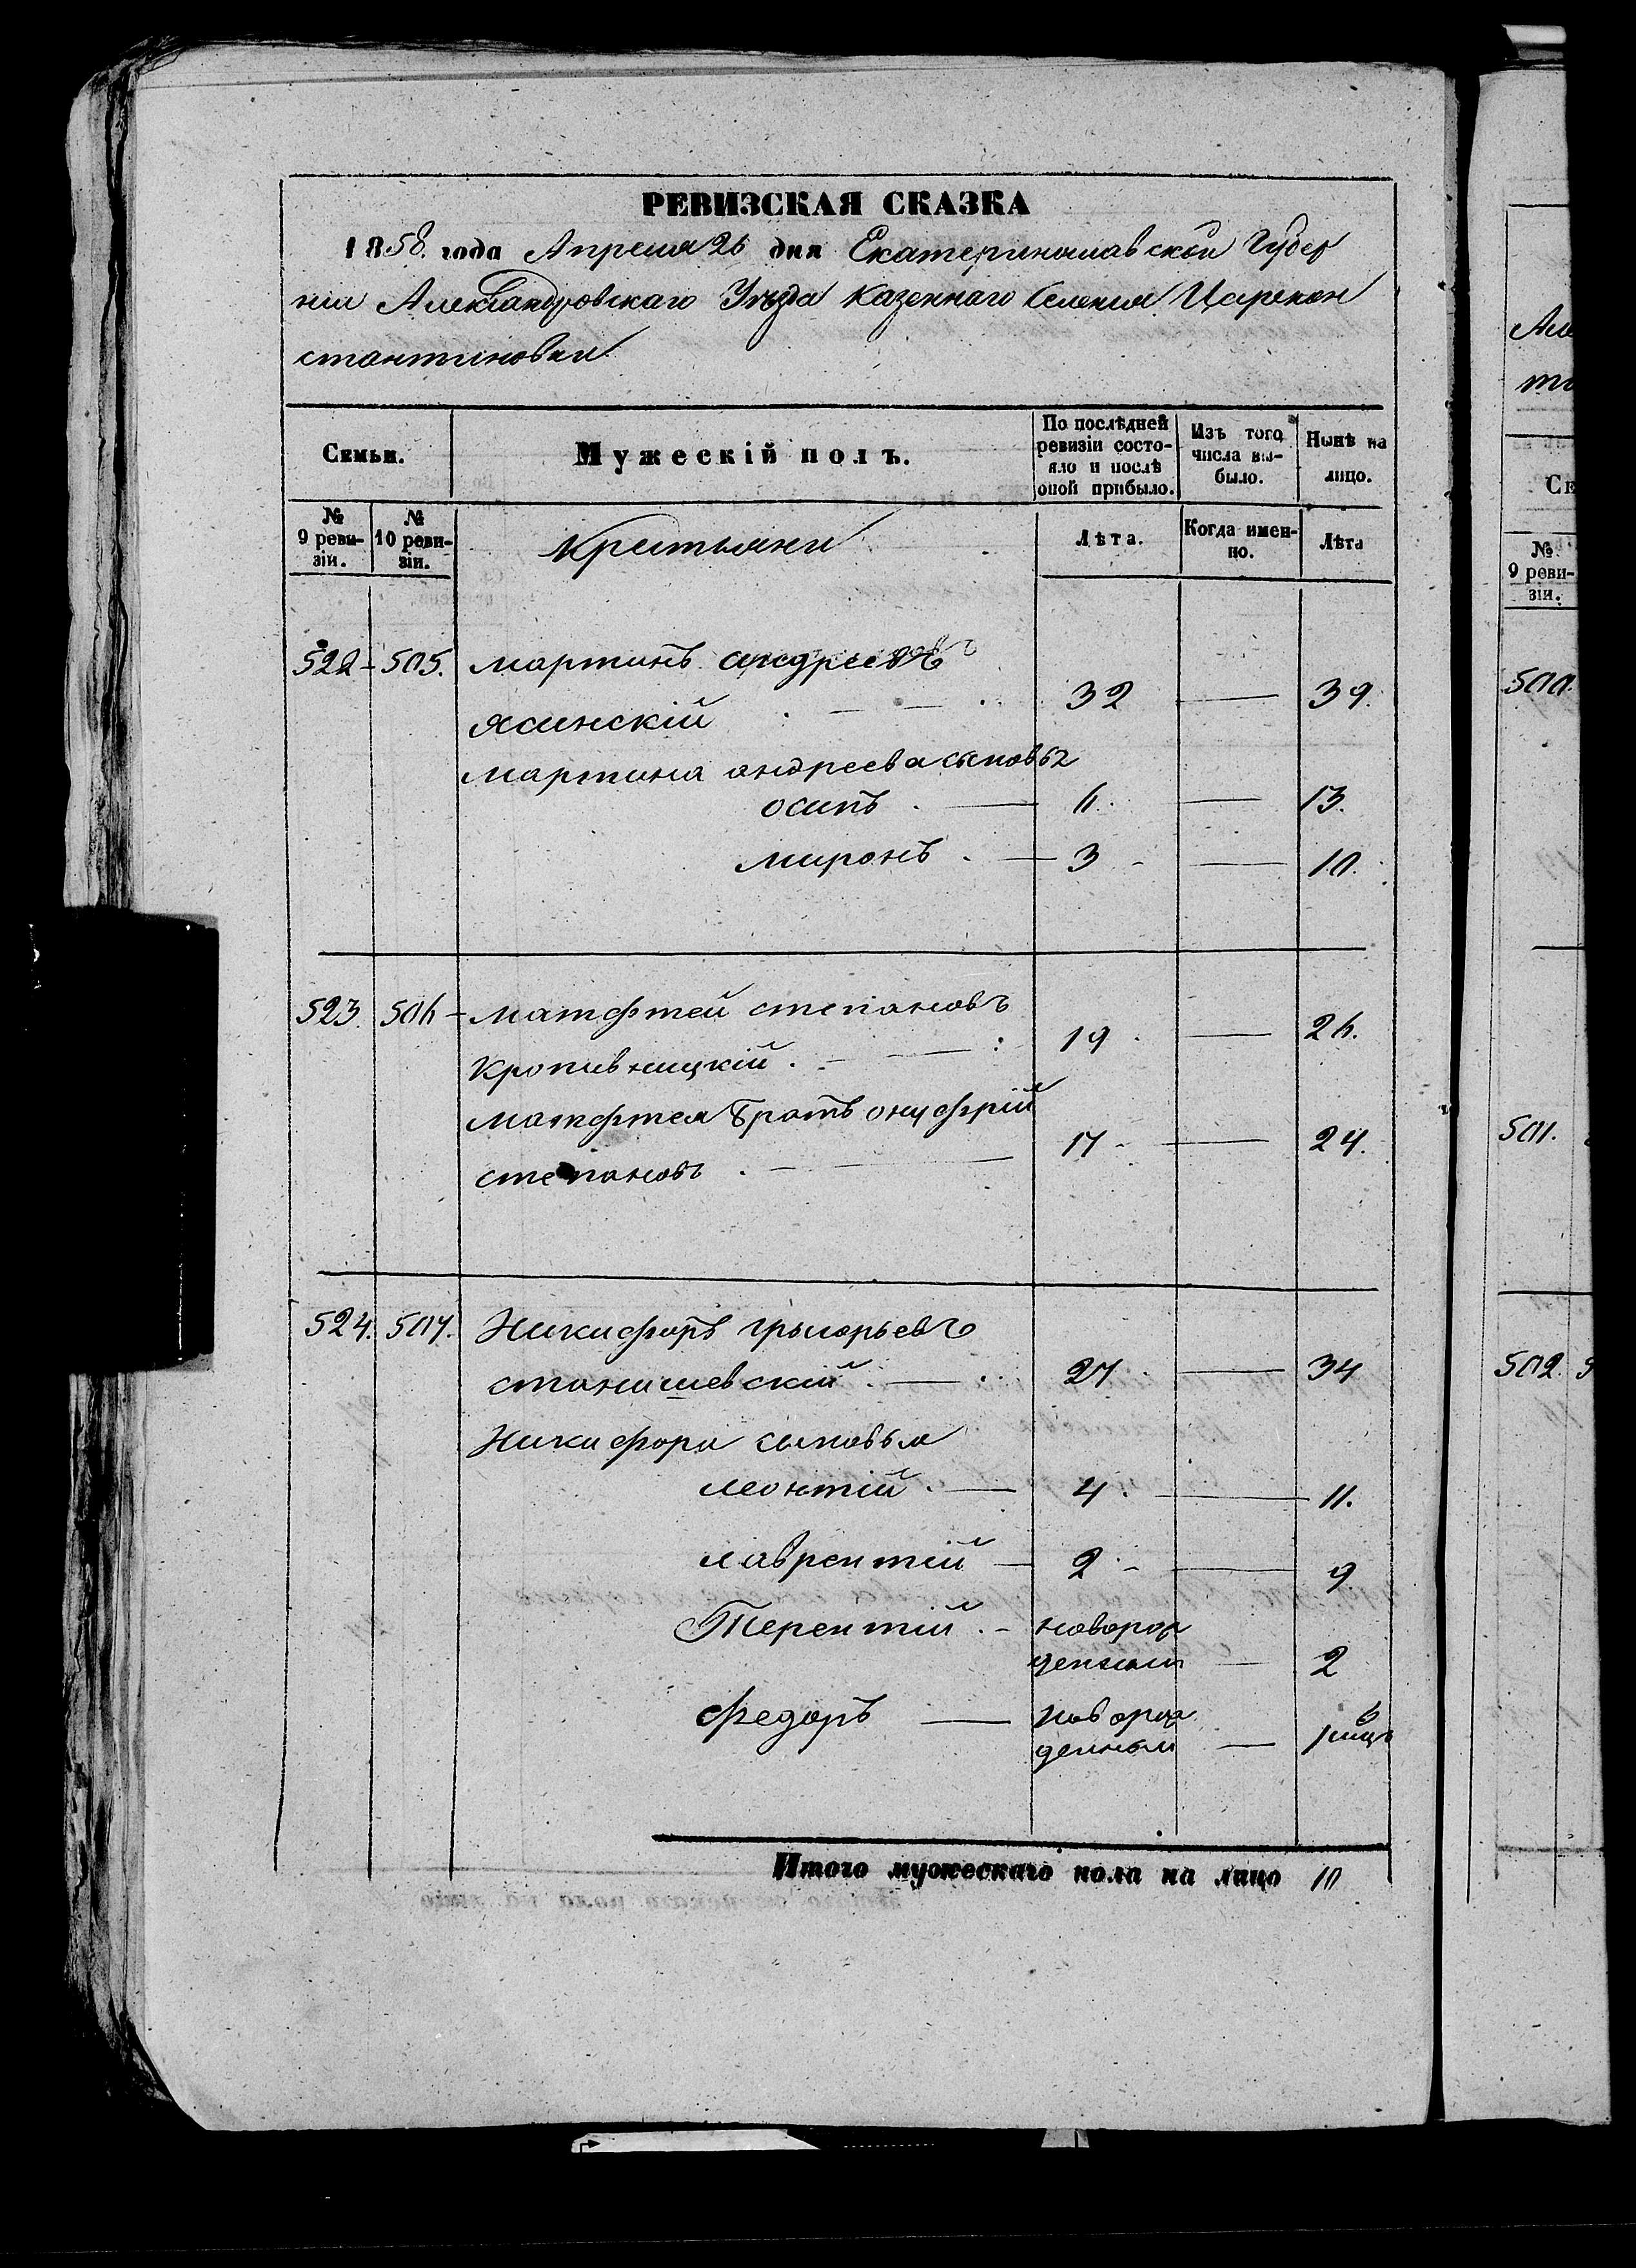 РЕВИЗСКАЯ СКАЗКА
1858. года Апреля 26 дня Екатеринославской Губер
нiи Александровскаго Уѣзда Казеннаго Селенiя Царекон
стантиновки
Семьи.
Мужескiй полъ.
По послѣдней ревизiи состо-
яло и послѣ
оной прибыло.
Изъ того
числа вы-
было.
Нынѣ на
лицо.
№
9 реви-
зiи.
№
10 реви-
зiи.
Крестьяни
Лѣта.
Когда имен-
но.
Лѣта
522 - 505. мартинъ андреевъ
Ясинскiй 32 — 39.
мартина андреева сыновья
осипъ . — 6. — 13.
миронъ . — 3 - — 10.
523. 506 - матфтей степановъ
Кропивницкiй . - — : 19 . — 26.
матфтея братъ онуфрiй
степановъ . - — 17 - — 24.
524. 507. Никифоръ грыгорьевъ
станишевскiй . — . 27 . — 34
Никифора сыновья
леонтiй . — 4 . — 11.
лаврентiй — 2 - — 9
Терентiй . - новорож
денный — 2
Федоръ — новорож
денный — 1 мцъ
Итого мужескаго пола на лицо 10
Але
Се
№
9 реви-
зiи.
500.
501.
502.